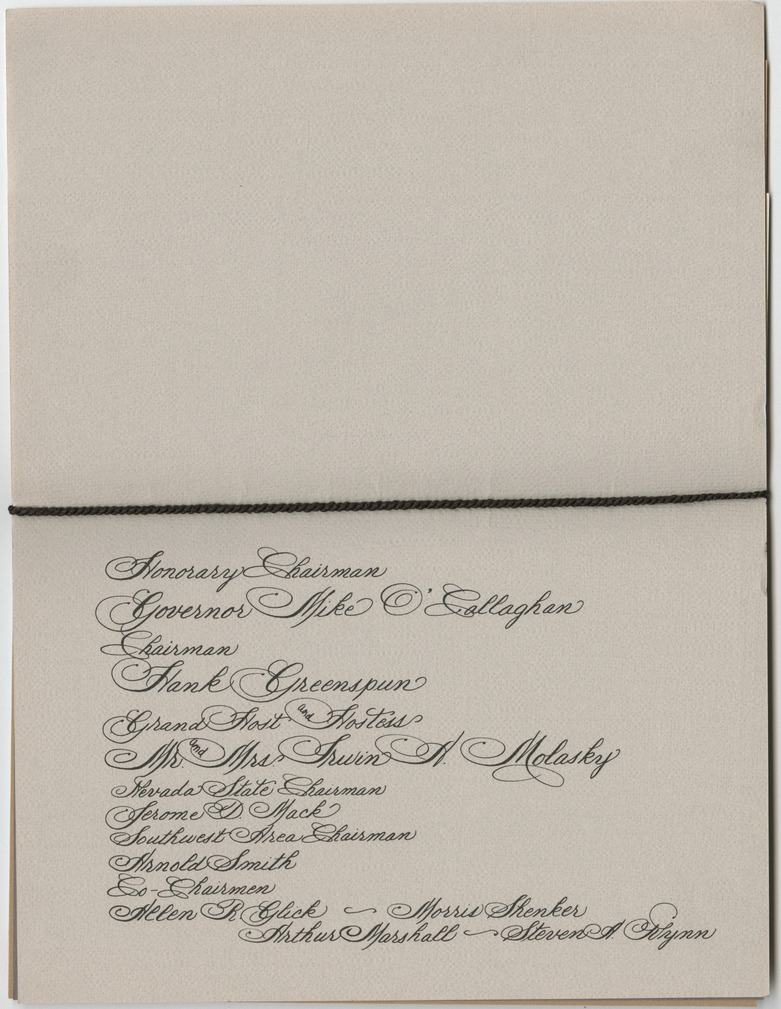 Honorary Chairman
Governor Mike O'Callaghan
Chairman
Hank Greenspun
Grand Host and Hostess
Mr. and Mrs. Irwin A. Molasky
Nevada State Chairman
Jerome D. Mack
Southwest Area Chairman
Arnold Smith
Co-Chairmen
Allen R. Glick ~ Morris Shenker
Arthur Marshall ~ Steven A. Wynn